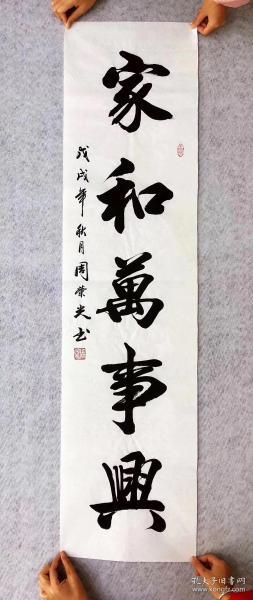 家和萬事興
戊戌年秋月周荣光书
孔夫子旧书网
www.kongfz.com